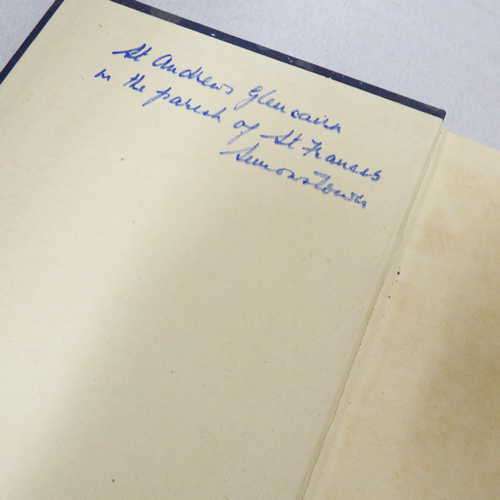 St Andrews Glencairn
in the parish of St Francis
Simonstown